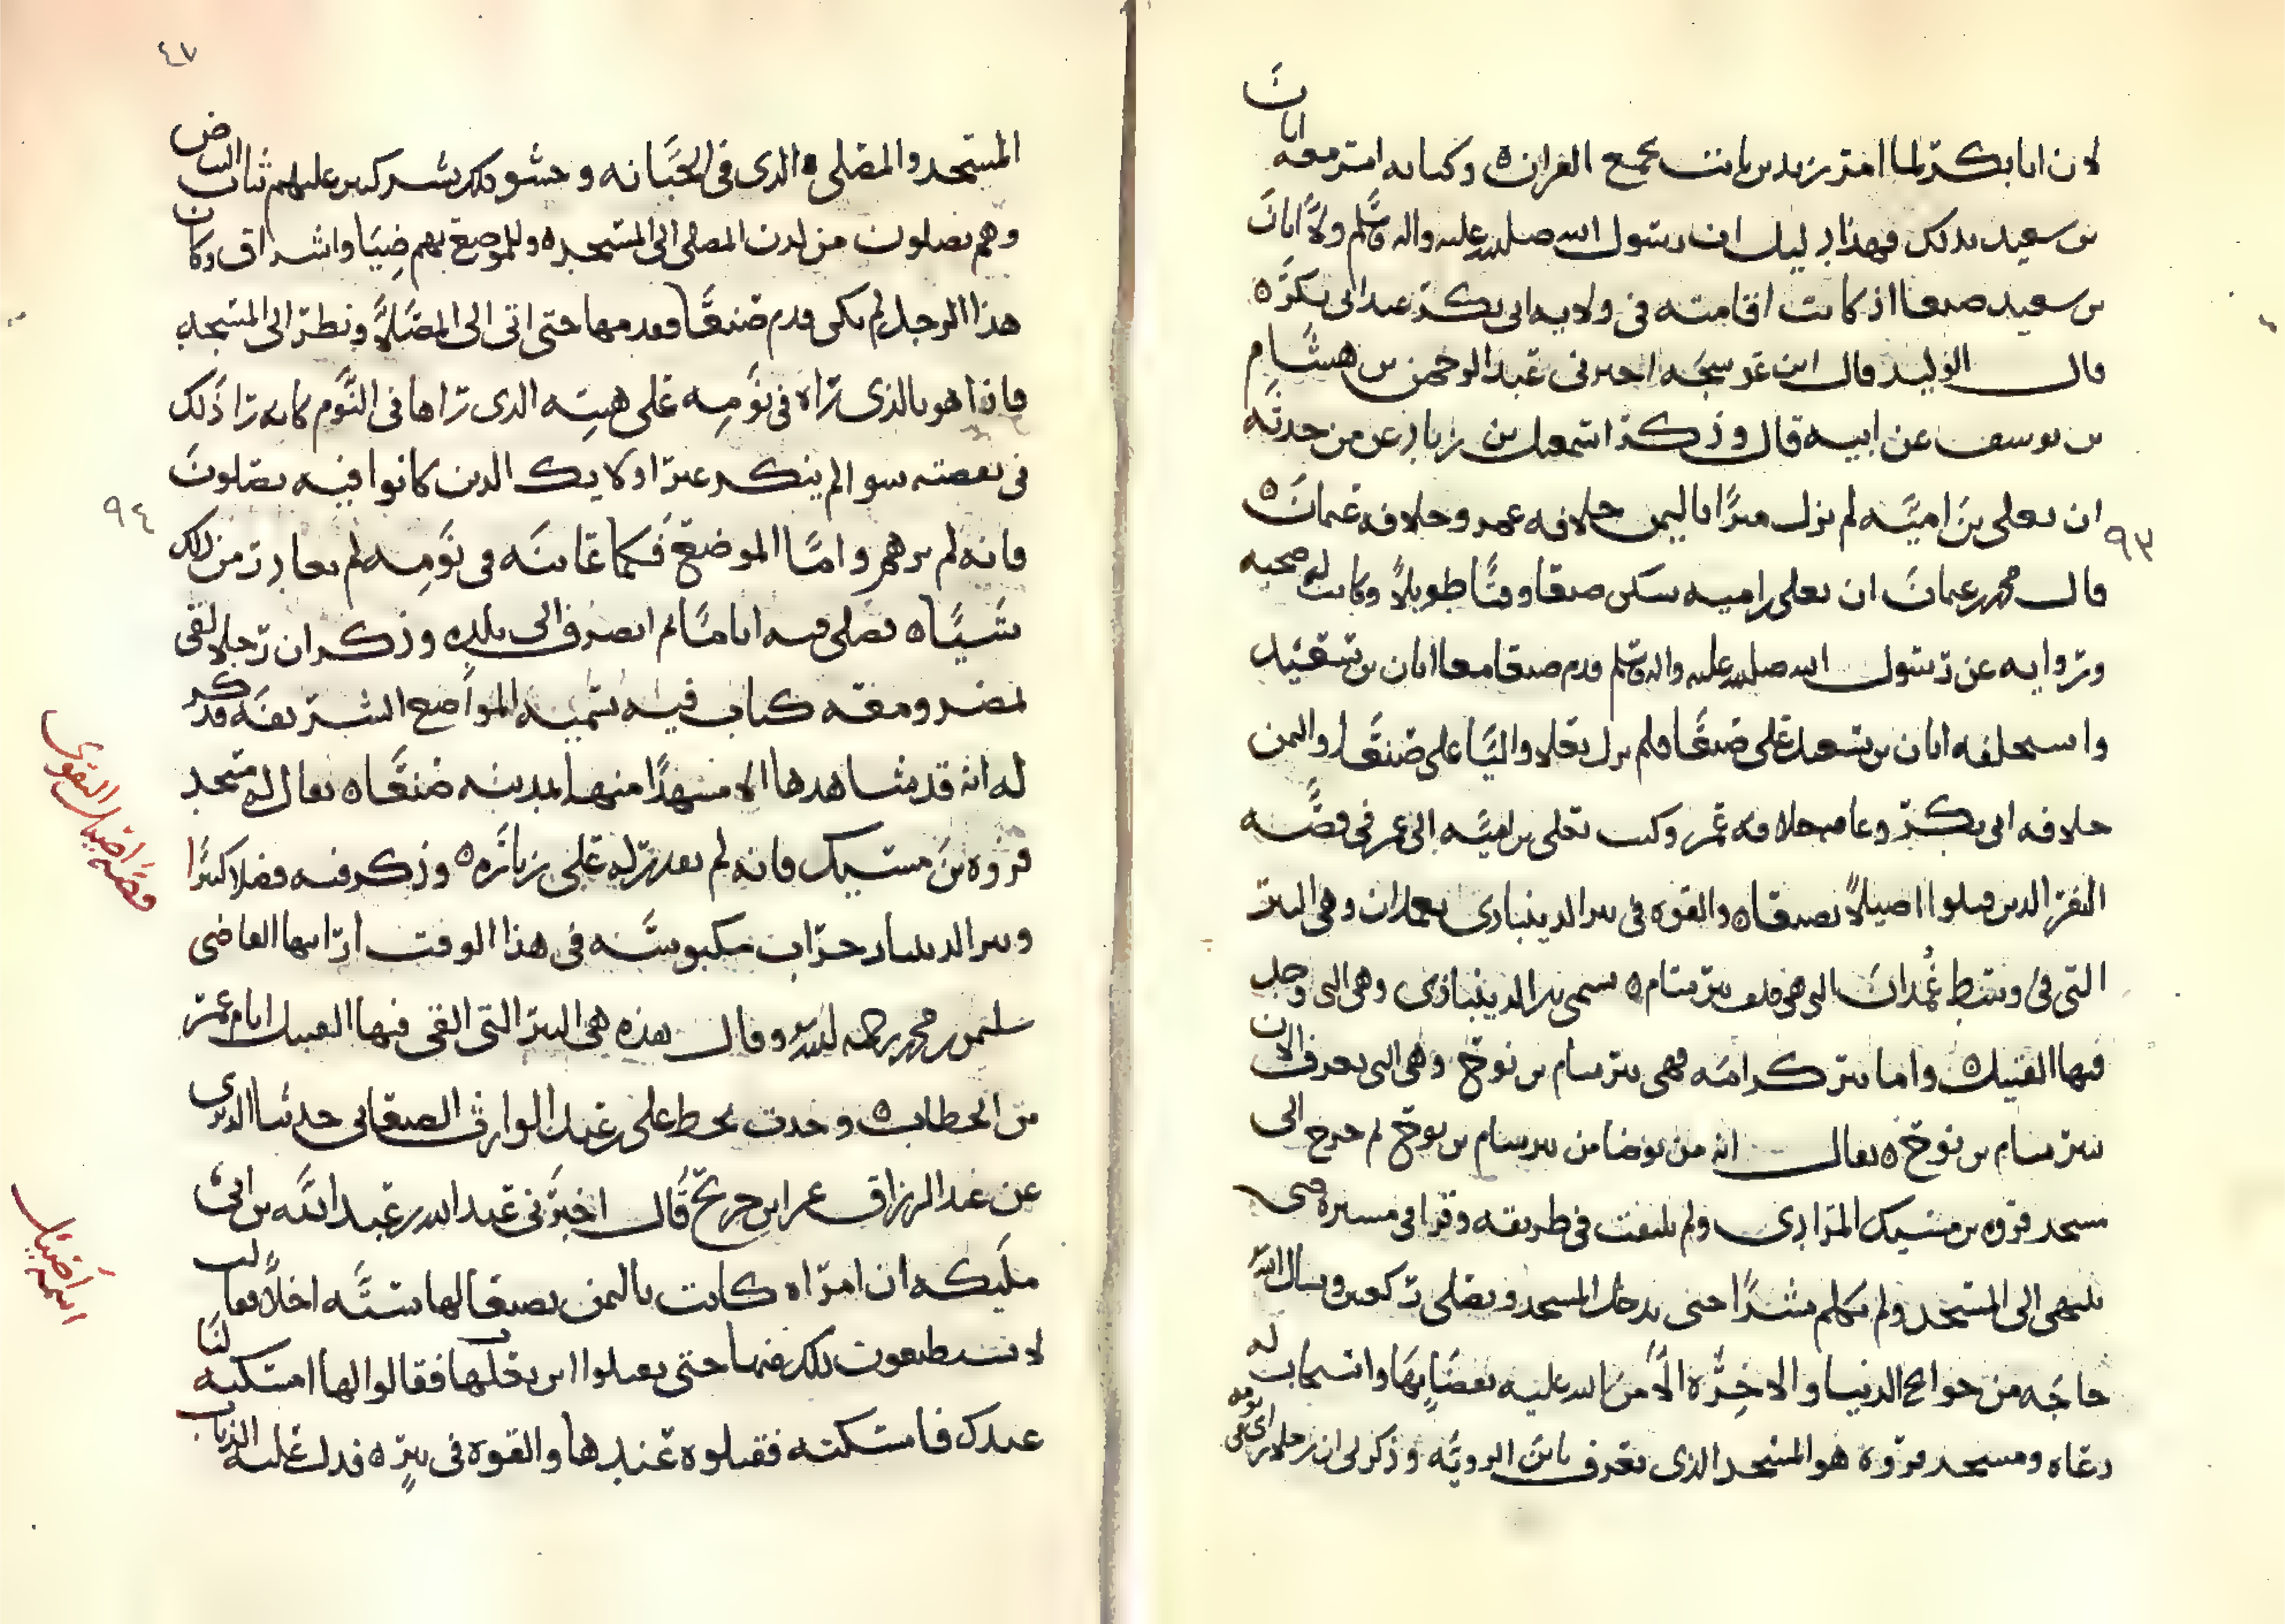 لان ابا بكر لما امر زيد بن ثابت بجمع القران ه وكتابه امر معه ابان
بن سعيد بذلك فهذا دليل ان رسول الله صلى الله عليه واله وسلم ولا ابان
بن سعيد صنعا اذ كانت اقامته في ولايه ابى بكر عند ابى بكر ه
قال الوليد قال ابن عوسجه اخبرنى عبد الرحمن بن هشام
بن يوسف عن ابيه قال وذكر اسمعيل بن زياد عن من حدثه
ان يعلى بن اميه لم يزل اميرا باليمن خلافه عمر وخلافه عثمان ه
٩٣
قال محمد بن عثمان ان يعلى بن اميه سكن صنعا وقتا طويلا وكانت له صحبه
وروايه عن رسول الله صلى الله عليه واله وسلم قدم صنعا مع ابان بن سعيد
واستخلفه ابان بن سعيد على صنعا فلم يزل يعلا واليا على صنعا واليمن
خلافه ابى بكر وعامه خلافه عمر وكتب يعلى بن اميه الى عمر في قصه
النفر الذين قتلوا اصيلا بصنعا ه والقوه في بير الدينبادى بغمدان وهي البير
التى في وسط غمدان التى هي خلف بير سام ه تسمى بير الدينبادى وهي التى وجد
فيها القتيل ه واما بير كرامه فهى بير سام بن نوح وهي التى تعرف الان
ببير سام بن نوح ه يقال انه من توضا من بير سام بن نوح ثم خرج الى
مسجد فروه بن مسيك المرادى ولم يلتفت في طريقه وقرا في مسيره حتى
ينتهى الى المسجد ولم يكلم بشرا حتى يدخل المسجد ويصلى ركعتين ويسال الله
حاجه من حوائج الدنيا والاخره الا من الله عليه بقضايها واستجاب له
دعاه ومسجد فروه هو المسجد الذى يعرف بابن الرويه وذكر لى ان رجلا راى في نومه
٤٧
المسجد والمصلى ه الذى في الجبانه وحشو ذلك بشر كثير عليهم ثياب البياض
وهم يصلون من لدن المصلى الى المسجد ه وللموضع بهم ضيا واشراق وكان
هذا الرجل لم يكن قدم صنعا فقدمها حتى اتى الى المصلا ونظر الى المسجد
فاذا هو بالذى راه في نومه على هيته الذى راها في النوم كانه را ذلك
في يقظته سوا لم ينكر غير اولايك الذين كانوا فيه يصلون
٩٤
فانه لم يرهم واما الموضع فكما عاينه في نومه لم يغادر من ذلك
شيا ه فصلى فيه اياما ثم انصرف الى بلده وذكر ان رجلا لقى
بمصر ومعه كتاب فيه تسميه المواضع الشريفه فذكر
له انه قد شاهدها الا مشهدا منها بمدينه صنعا ه يقال له مسجد
فروه بن مسيك فانه لم يقدر له على زيارَه ه وذكر فيه فضلا كثيرا
وبير الدينباد خراب مكبوسه في هذا الوقت ارانيها القاضى
سليمن بن محمد رحمه الله وقال هذه هي البير التى القى فيها القتيل ايام عمر
بن الخطاب ه وجدت بخط على بن عبد الوارث الصنعانى حدثنا الدبرى
عن عبد الرزاق عن ابن جريج قال اخبرنى عبد الله بن عبيد الله بن ابى
مليكه ان امراه كانت باليمن بصنعا لها سته اخلا فقالت
لا تستطيعون ذلك منها حتى يقتلوا ابن بعلها فقالوا لها امسكيه لنا
عندك فامسكته فقتلوه عندها والقوه في بير ه فدل عليه الذباب
قصه اصيل المقتول
اسمه اصيل